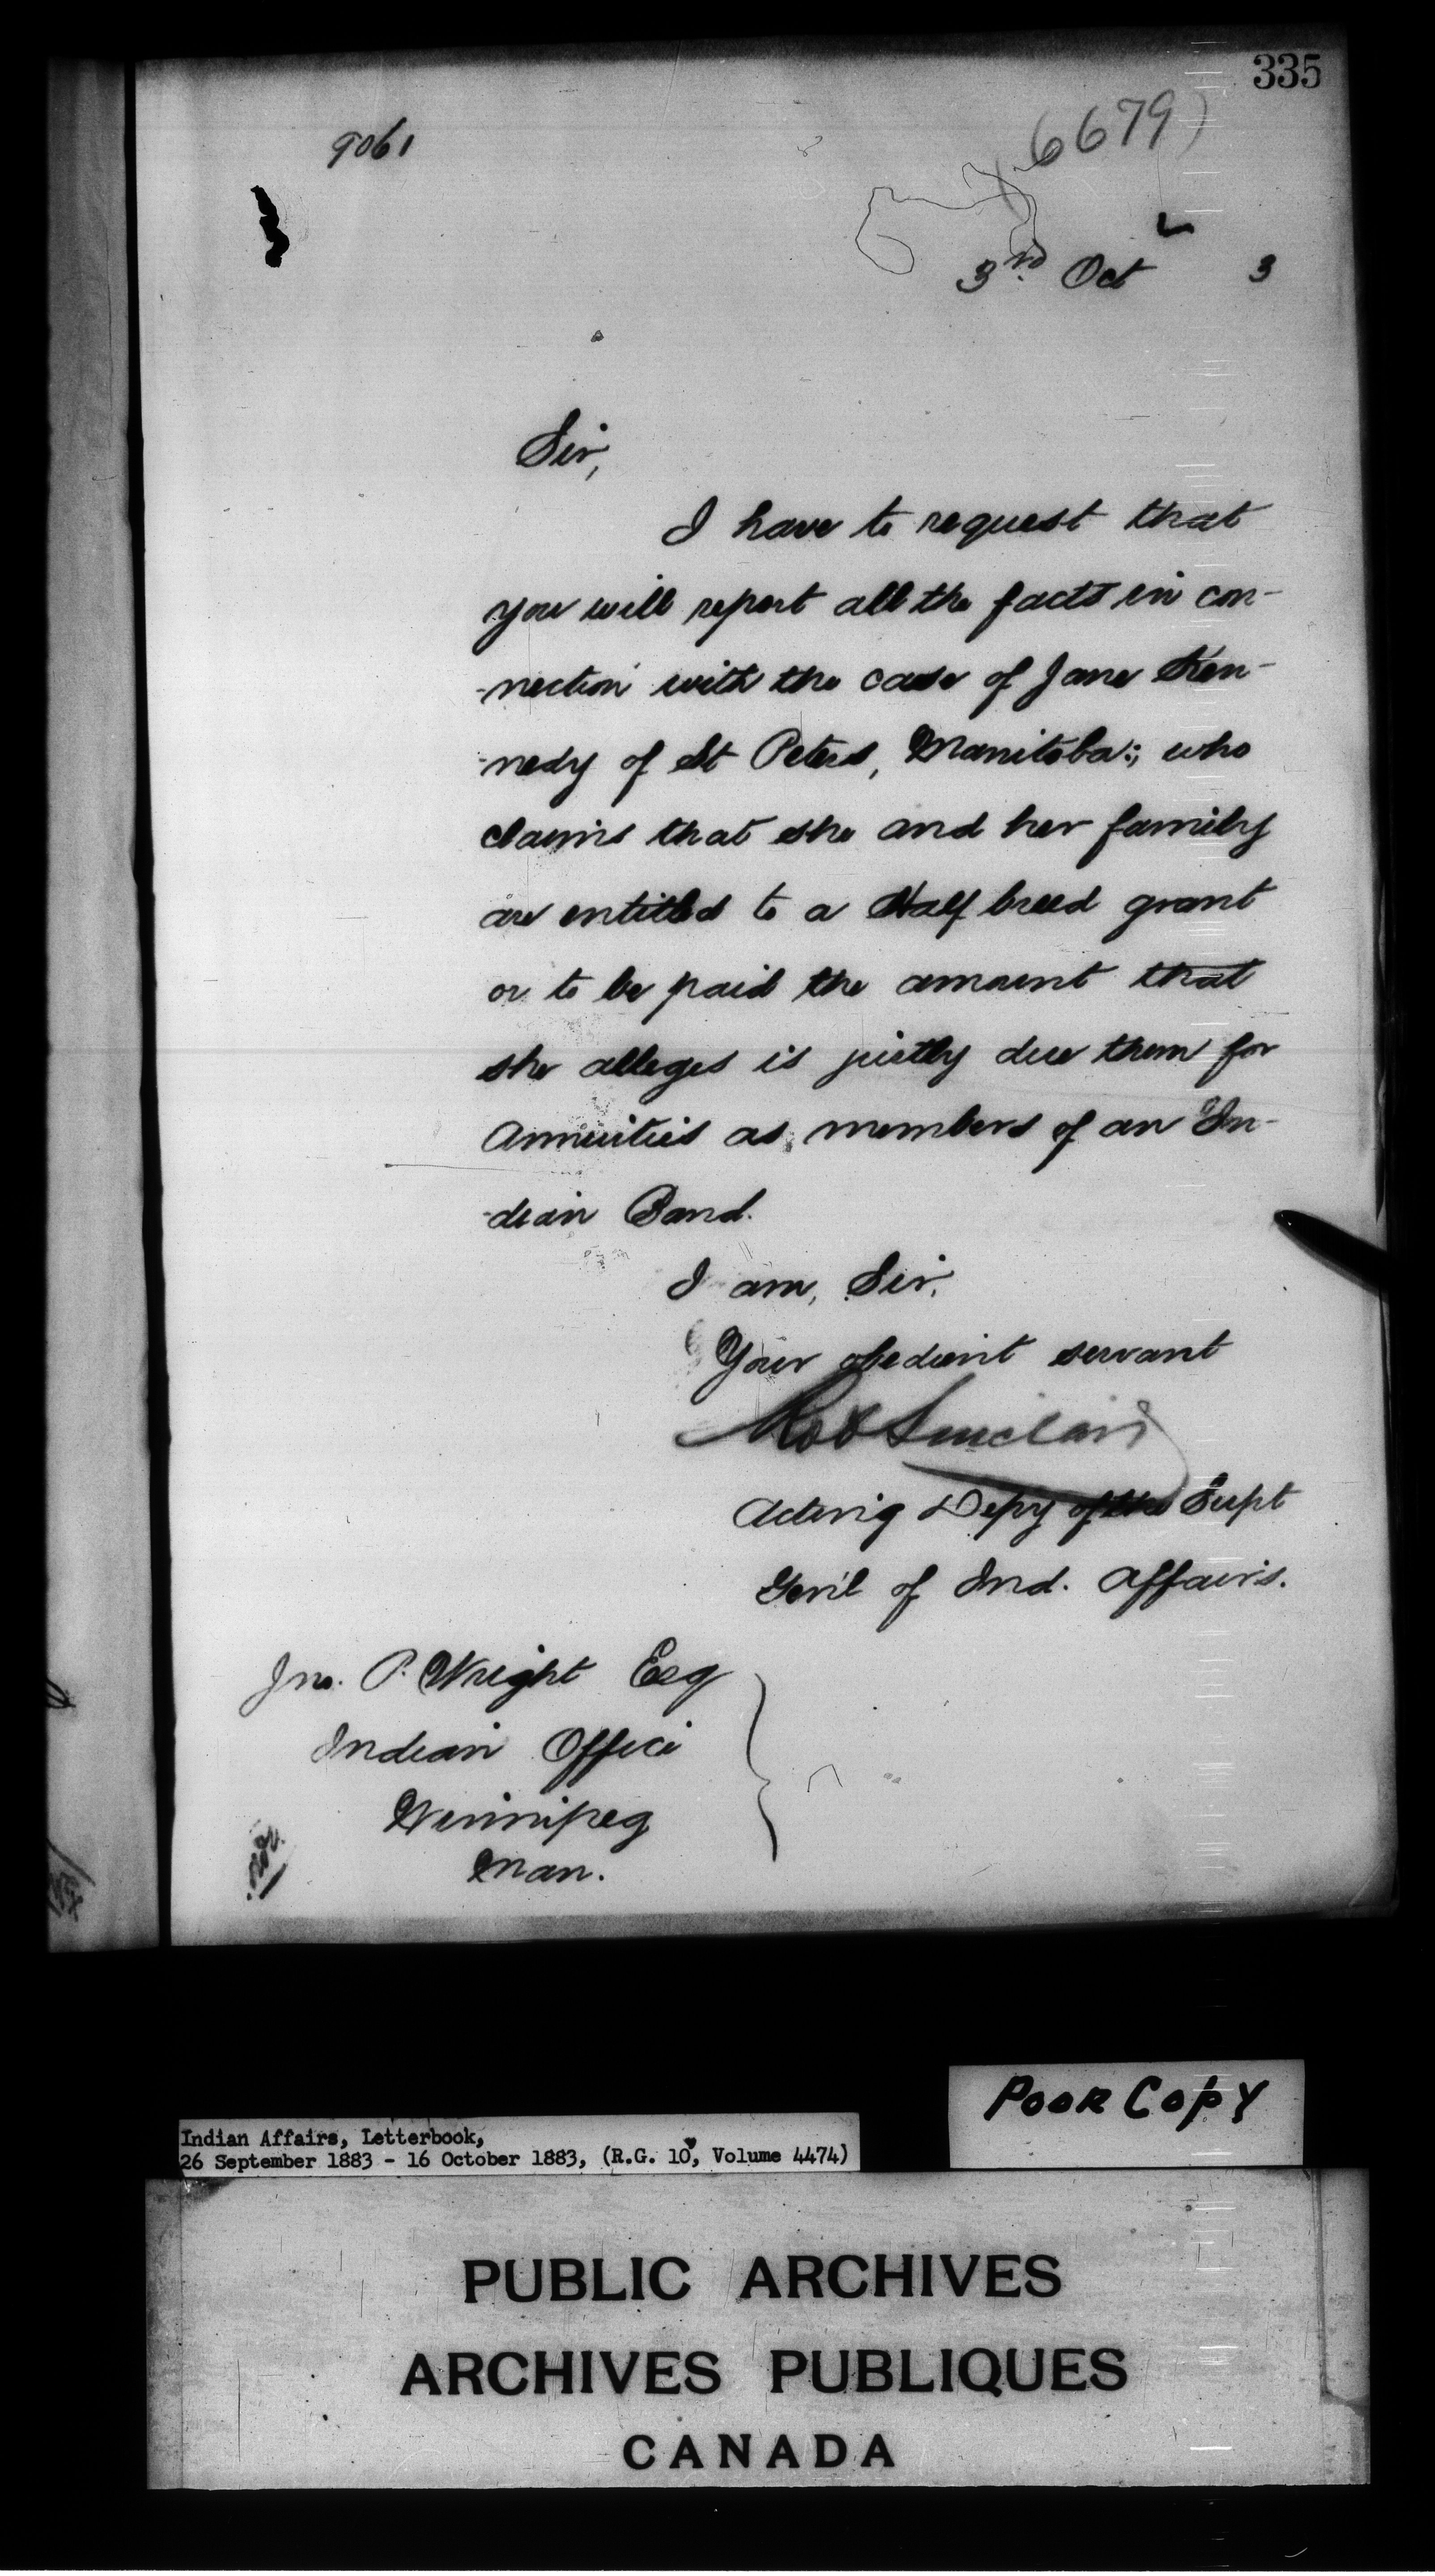 335
9061
6679)
3rd Oct 3
Sir,
I have to request that
you will report all the facts in con-
-nection with the case of Jane Ken-
-nedy of St Peters, Manitoba; who
claims that she and her family
are entitled to a Half breed grant
or to be paid the amount that
she alleges is justly due them for
Annuities as members of an In-
-dian Band.
I am, Sir,
Your obedient servant
Robt Sinclair
Acting Depy of the Supt
Gen'l of Ind. Affairs.
Jno. P. Wright Esq
Indian Office
Winnipeg
Man.
POOR COPY
Indian Affairs, Letterbook,
26 September 1883 - 16 October 1883, (R.G. 10, Volume 4474)
PUBLIC ARCHIVES
ARCHIVES PUBLIQUES
CANADA